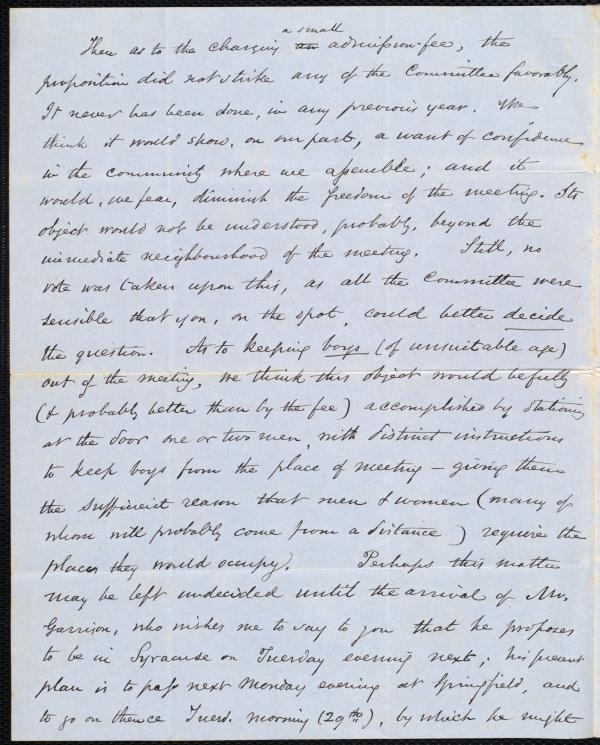 a small
Then as to the charging an admission-fee, the
proposition did not strike any of the Committee favorably.
It never has been done, in any previous year. We
think it would show, on our part, a want of confidence
in the community where we assemble; and it
would, we fear, diminish the freedom of the meeting. Its
object would not be understood, probably, beyond the
immediate neighbourhood of the meeting. Still, no
vote was taken upon this, as all the Committee were
sensible that you, on the spot, could better decide
the question. As to keeping boys (of unsuitable age)
out of the meeting, we think this object would be fully
(& probably better than by the fee) accomplished by stationing
at the door one or two men, with distinct instructions
to keep boys from the place of meeting – giving them
the sufficient reason that men & women (many of
whom will probably come from a distance) require the
places they would occupy. Perhaps this matter
may be left undecided until the arrival of Mr.
Garrison, who wishes me to say to you that he proposes
to be in Syracuse on Tuesday evening next; his present
plan is to pass next Monday evening at Springfield, and
to go on thence Tuesd. morning (29th), by which he might